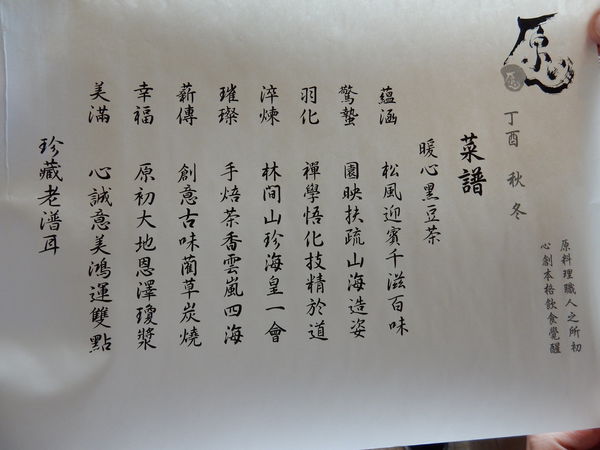 原心
原
原料理職人之所初
心創本格飲食覺醒
丁酉 秋冬
菜譜
暖心黑豆茶
蘊涵 松風迎賓千滋百味
驚蟄 園映扶疏山海造姿
羽化 禪學悟化技精於道
淬煉 林間山珍海皇一會
璀璨 手焙茶香雲嵐四海
薪傳 創意古味藺草炭燒
幸福 原初大地恩澤瓊漿
美滿 心誠意美鴻運雙點
珍藏老譜耳